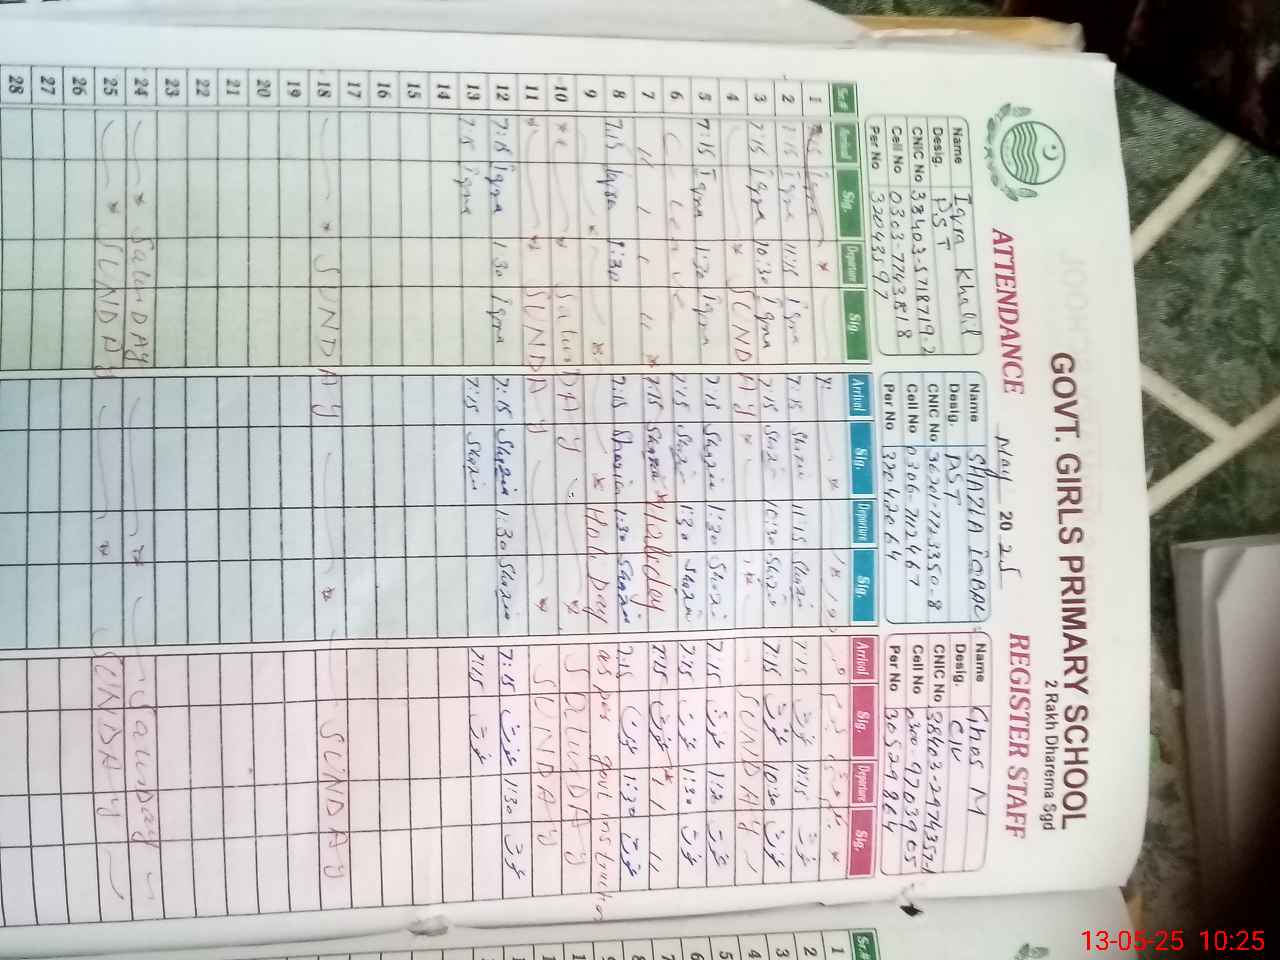 GOVT. GIRLS PRIMARY SCHOOL
2 Rakh Dharema Sgd
ATTENDANCE May 2025 REGISTER STAFF
Name Iqra Khalil
Desig. PST
CNIC No 38403-5718719-2
Cell No 0303-7743818
Per No 32043597
Name SHAZIA IQBAL
Desig. PST
CNIC No 36201-7723350-8
Cell No 0306-7112467
Per No 32042064
Name Ghos M
Desig. C/V
CNIC No 38403-2974357-1
Cell No 0300-9703965
Per No 30529864
Sr.# Arrival Sig. Departure Sig. Arrival Sig. Departure Sig. Arrival Sig. Departure Sig.
1
2 7:15 Iqra 11:15 Iqra 7:15 Shazia 11:15 Shazia 7:15 11:15
3 7:15 Iqra 10:30 Iqra 7:15 Shazia 10:30 Shazia 7:15 10:30
4 SUNDAY SUNDAY
5 7:15 Iqra 1:30 Iqra 7:15 Shazia 1:30 Shazia 7:15
6 C Leave 7:15 Shazia 1:30 Shazia 7:15 1:30
7 7:15 Shazia Holiday 7:15
8 7:15 Iqra 1:30 7:15 Shazia 1:30 Shazia 7:15 1:30
9 Holi Day as per govt instruction
10 SaturDAY SaturDAY
11 SUNDAY SUNDAY
12 7:15 Iqra 1:30 Iqra 7:15 Shazia 1:30 Shazia 7:15 1:30
13 7:15 Iqra 7:15 Shazia 7:15
14
15
16
17
18 SUNDAY SUNDAY
19
20
21
22
23
24 SaturDAY SaturDay
25 SUNDAY SUNDAY
26
27
28
Sr.#
1
2
3
4
5
6
7
8
13-05-25 10:25